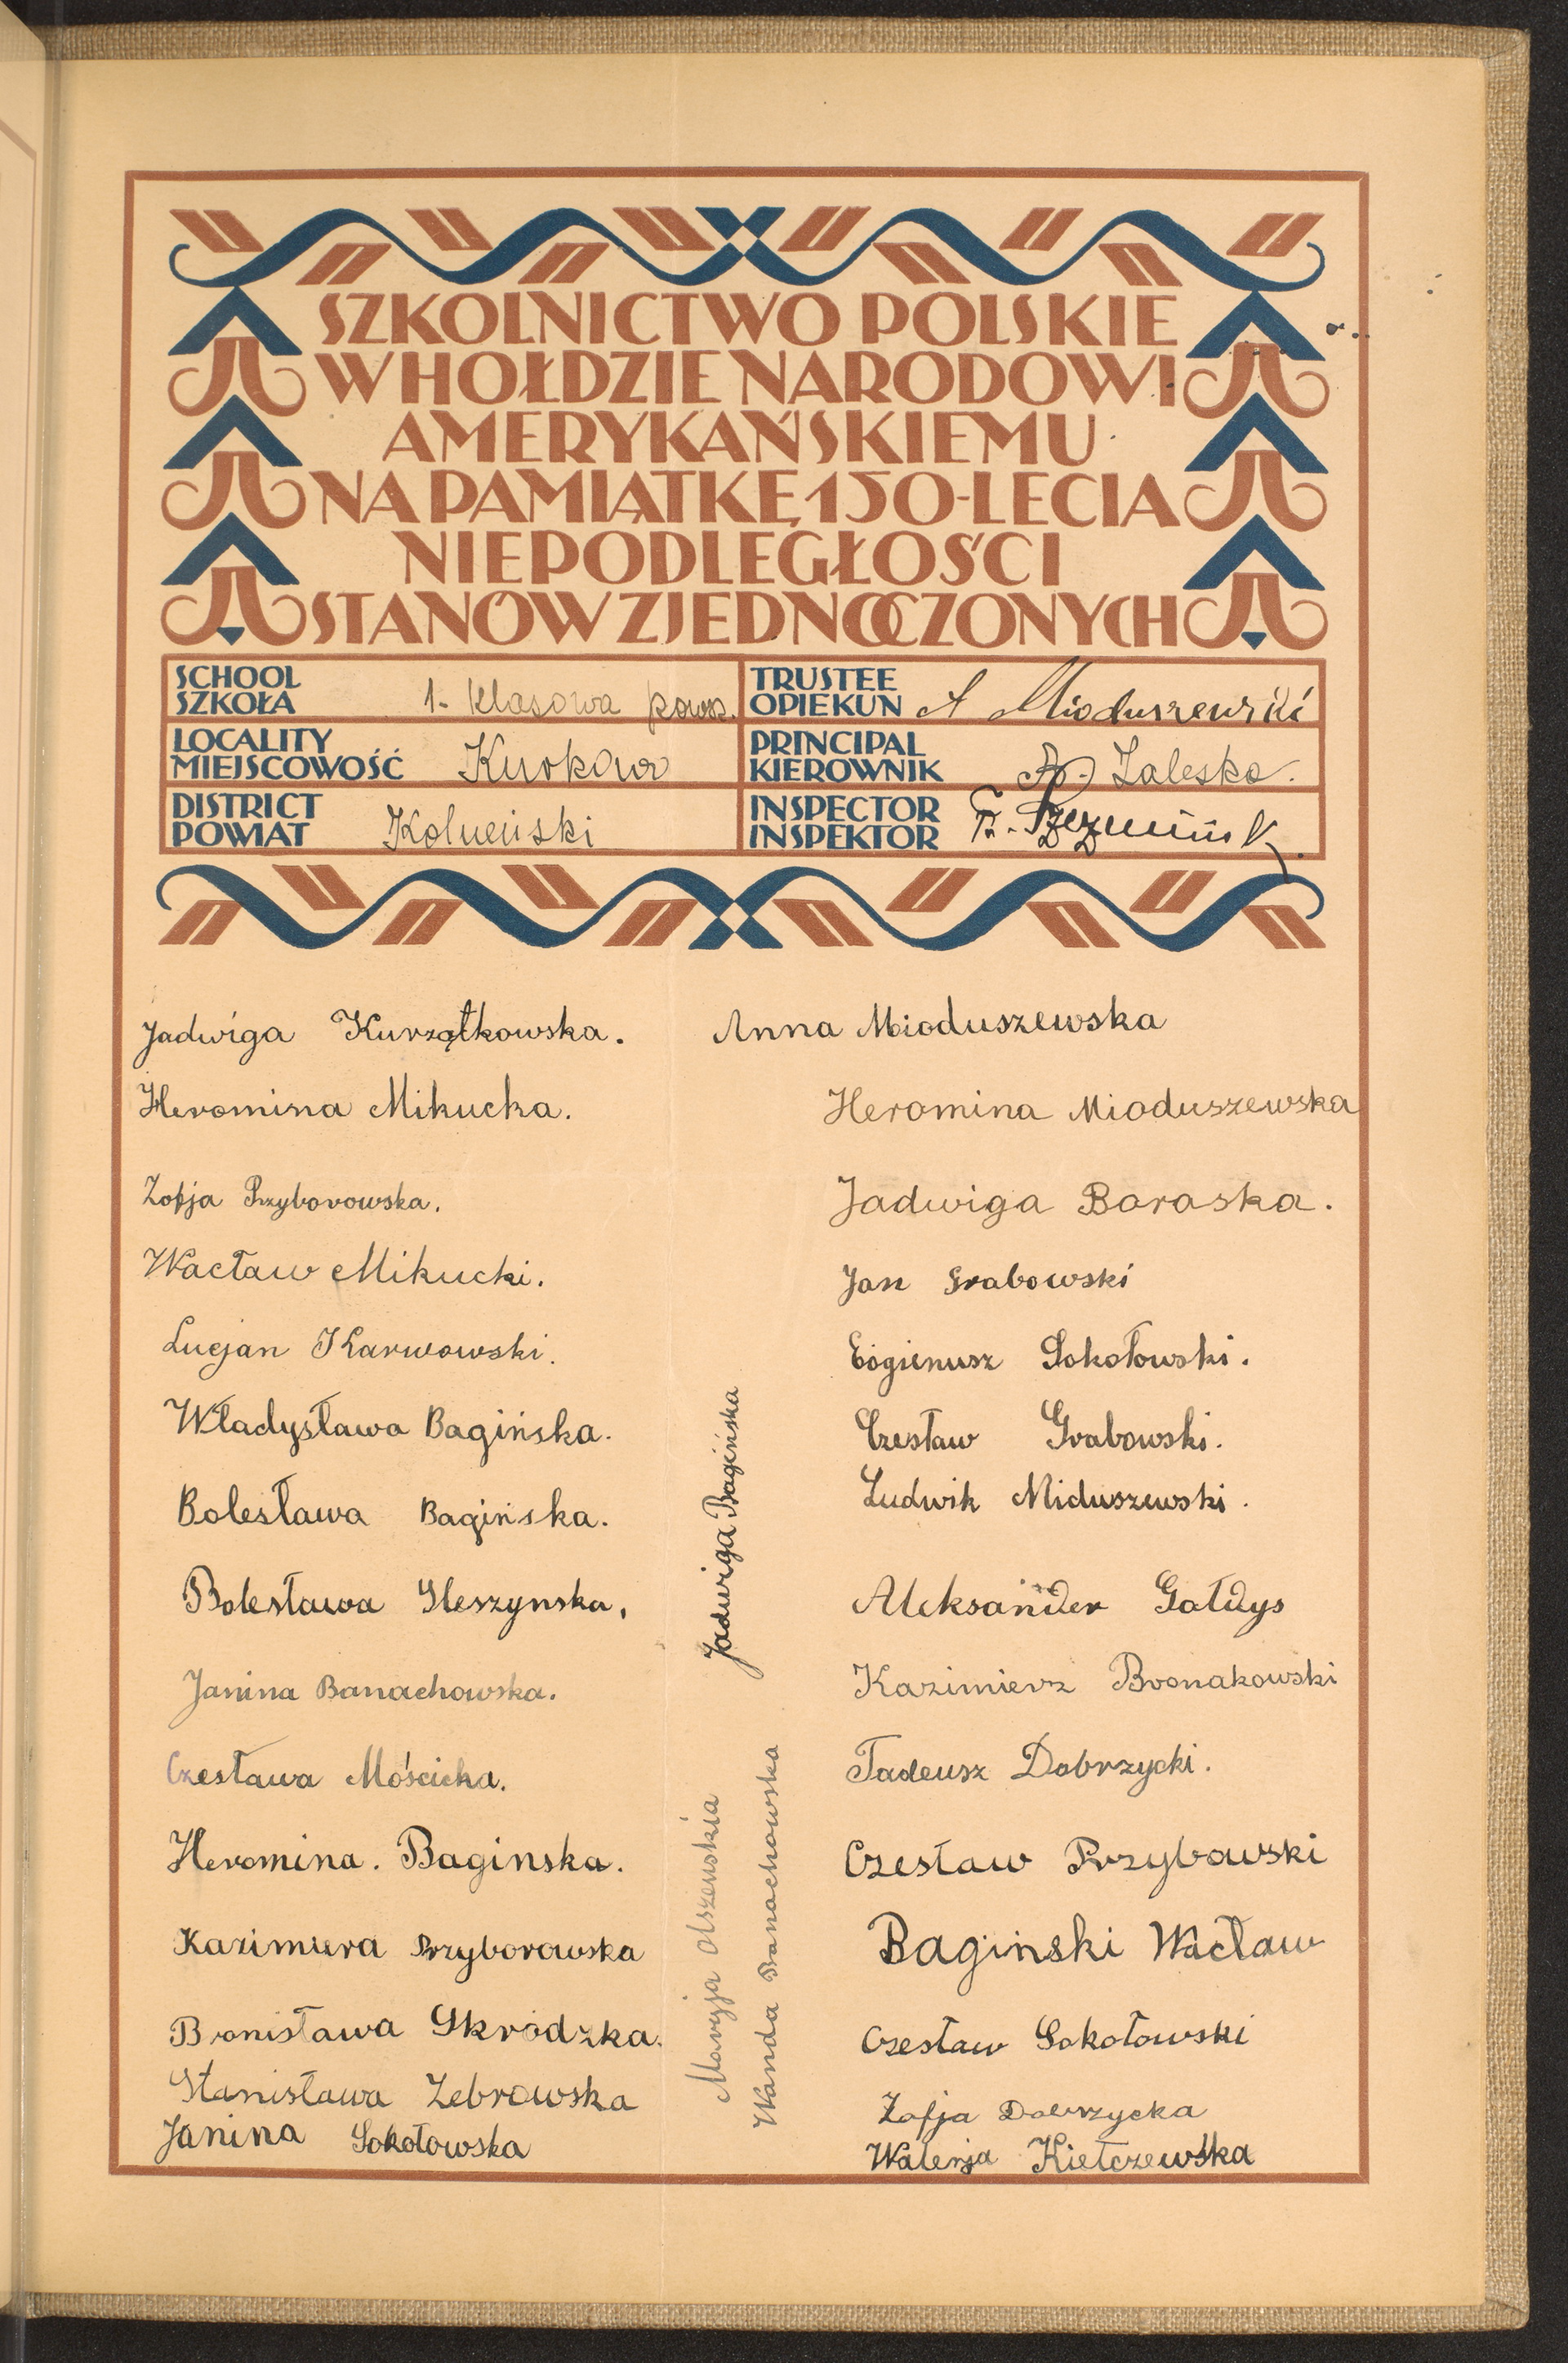 SZKOLNICTWO POLSKIE
W HOŁDZIE NARODOWI
AMERYKAŃSKIEMU
NA PAMIĄTKĘ 150-LECIA
NIEPODLEGŁOŚCI
STANÓW ZJEDNOCZONYCH
SCHOOL
SZKOŁA 1- klasowa powsz.
TRUSTEE
OPIEKUN A Mioduszewski
LOCALITY
MIEJSCOWOŚĆ Kurkowo
PRINCIPAL
KIEROWNIK Zaleska.
DISTRICT
POWIAT Kolneński
INSPECTOR
INSPEKTOR
Jadwiga Kurządkowska.
Heromina Mikucka.
Zofja Przyborowska.
Wacław Mikucki.
Lucjan Karwowski.
Władysława Bagińska.
Bolesława Bagińska.
Bolesława Sleszynska,
Janina Banachowska.
Czesława Mościcka.
Heromina. Baginska.
Kazimiera Przyborowska
Bronisława Skrodzka.
Stanisława Zebrowska
Janina Sokołowska
Jadwiga Bagińska
Maryja Olszeńskia
Wanda Banachowska
Anna Mioduszewska
Heromina Mioduszewska
Jadwiga Baraska.
Jan Grabowski
Eogienusz Sokołowski.
Czesław Grabowski.
Ludwik Miduszewski.
Aleksander Gałdys
Kazimierz Bronakowski
Tadeusz Dobrzycki.
Czesław Przybowski
Baginski Wacław
Czesław Sokołowski
Zofja Dobrzycka
Walerja Kiełczewska